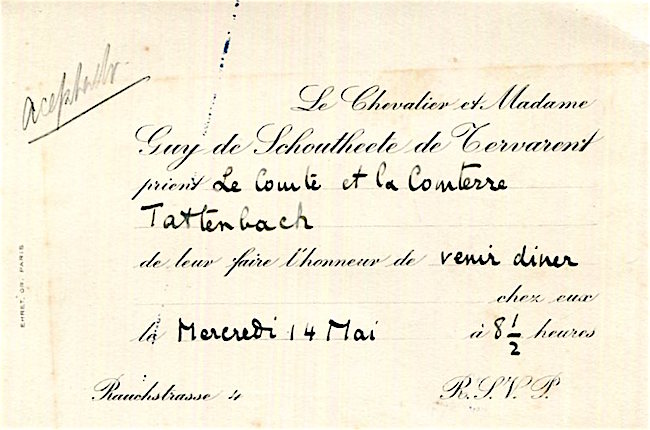 Le Chevalier et Madame
Guy de Schoutheete de Tervarent
prient Le Comte et la Comtesse
Tattenbach
de leur faire l'honneur de venir diner
chez eux
le Mercredi 14 Mai à 8 1/2 heures
Rauchstrasse 4 R.S.V.P.
EHRET, GR. PARIS